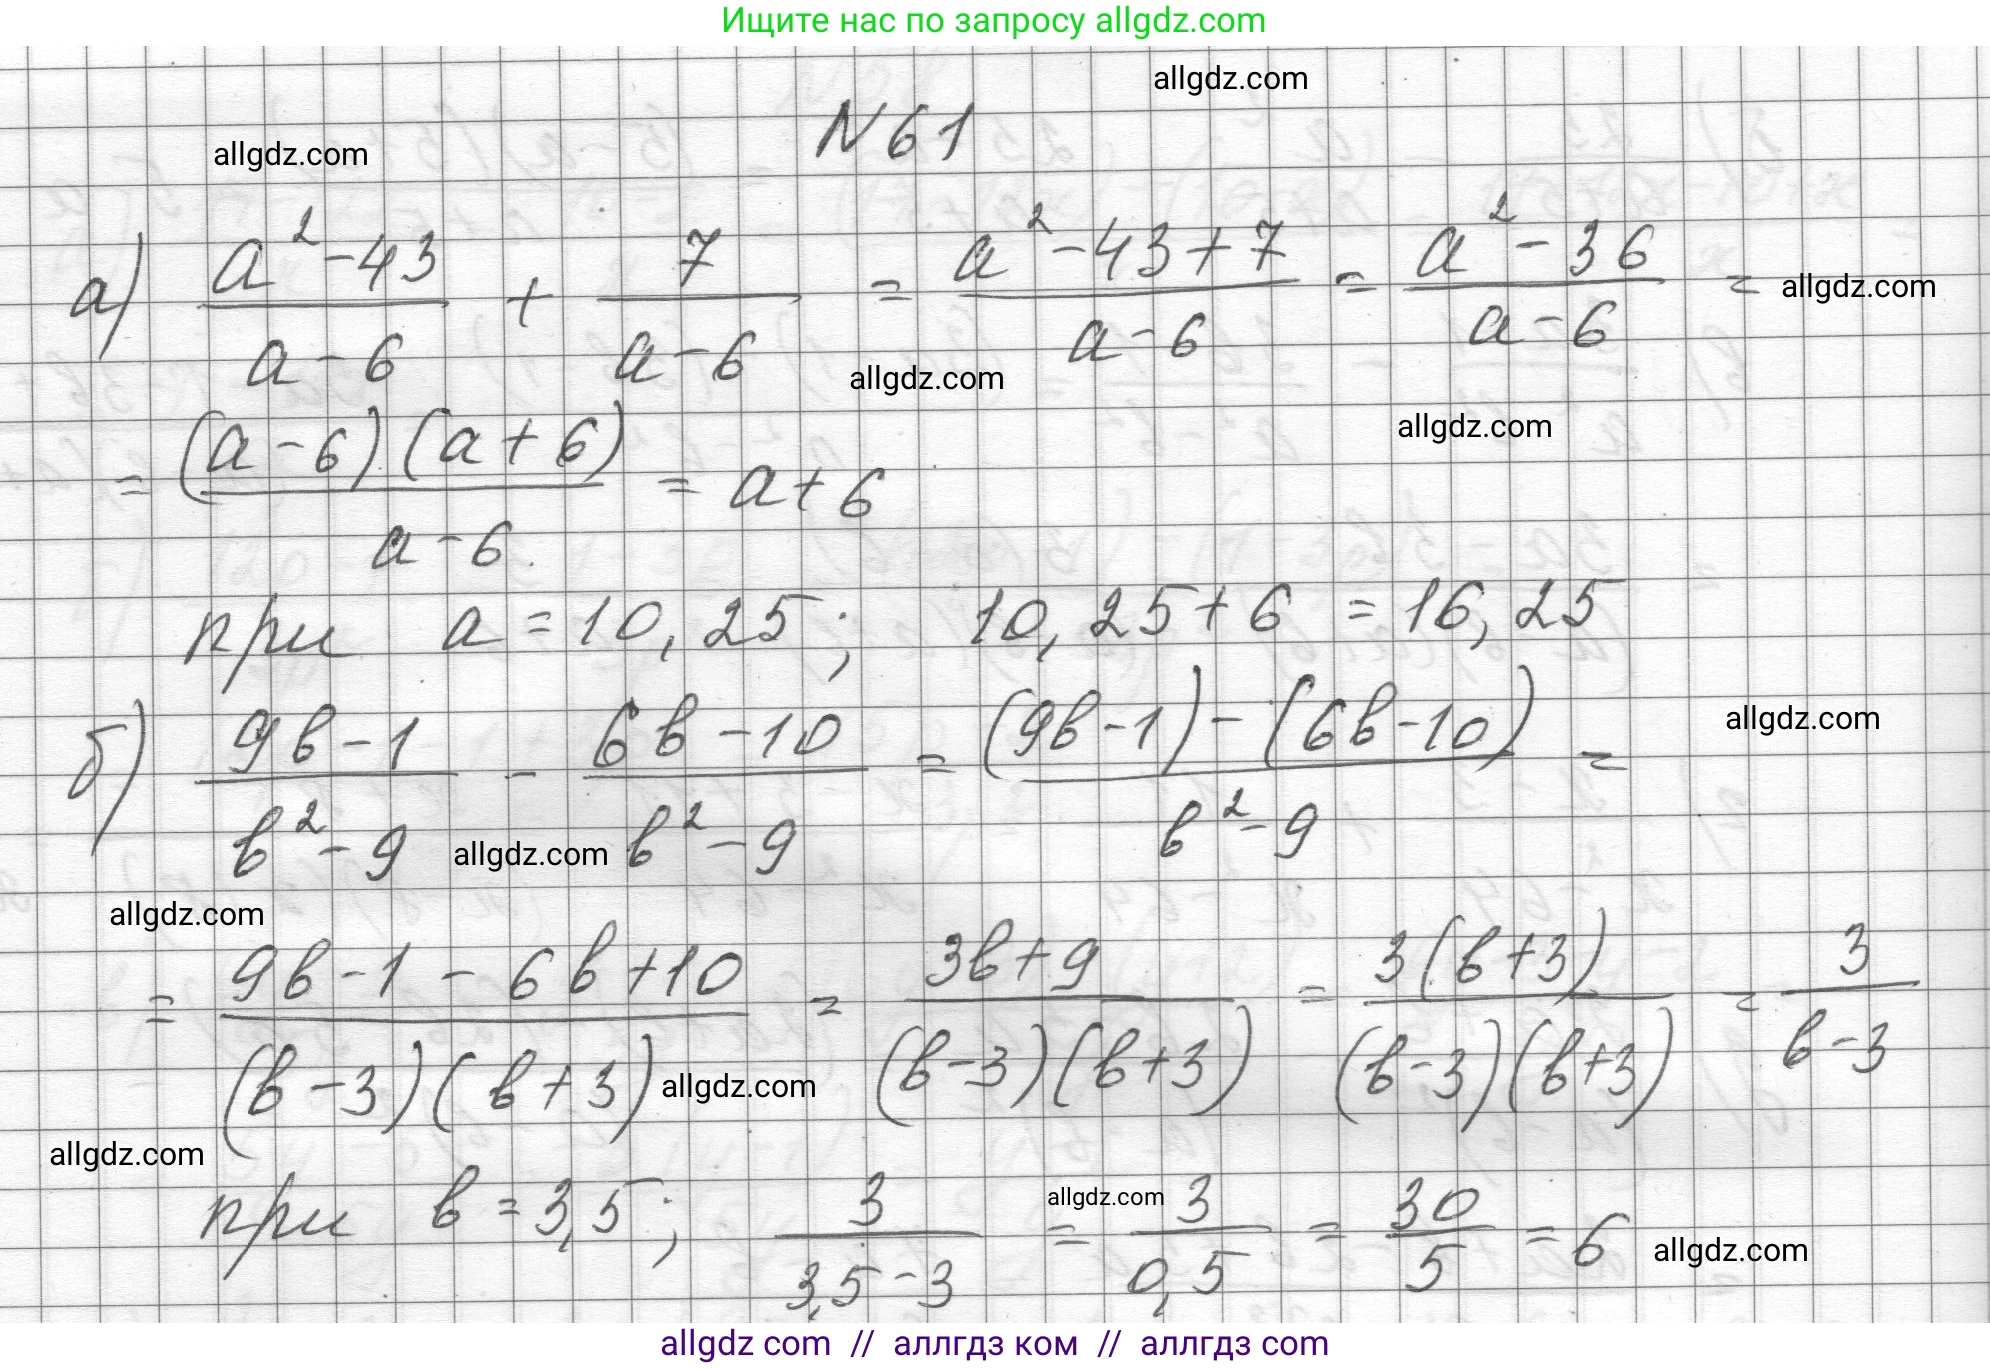 Ищите нас по запросу allgdz.com
allgdz.com
N 61
allgdz.com
а) (a² - 43)/(a - 6) + 7/(a - 6) = (a² - 43 + 7)/(a - 6) = (a² - 36)/(a - 6) =
allgdz.com
allgdz.com
allgdz.com
= ((a - 6)(a + 6))/(a - 6) = a + 6
при a = 10,25; 10,25 + 6 = 16,25
б) (9в - 1)/(в² - 9) - (6в - 10)/(в² - 9) = ((9в - 1) - (6в - 10))/(в² - 9) =
allgdz.com
allgdz.com
allgdz.com
= (9в - 1 - 6в + 10)/((в - 3)(в + 3)) = (3в + 9)/((в - 3)(в + 3)) = (3(в + 3))/((в - 3)(в + 3)) = 3/(в - 3)
allgdz.com
allgdz.com
при в = 3,5; 3/(3,5 - 3) = 3/(0,5) = 30/5 = 6
allgdz.com
allgdz.com
allgdz com // аллгдз ком // аллгдз com